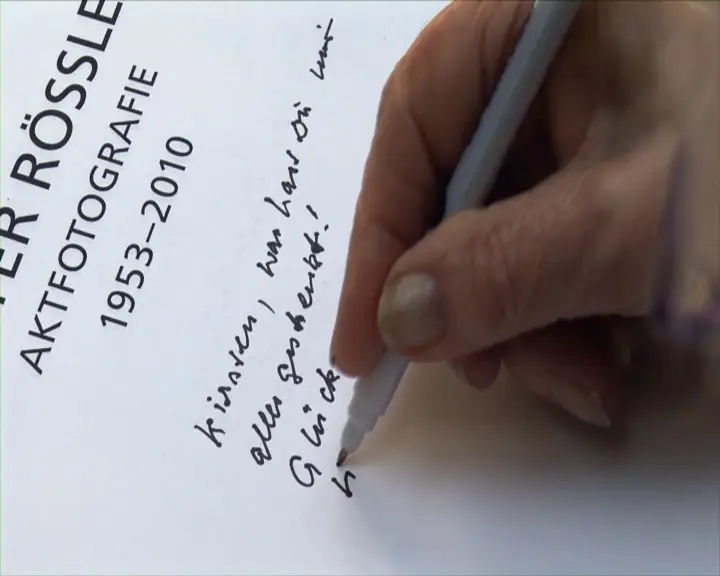 ER RÖSSLE
AKTFOTOGRAFIE
1953–2010
Kirsten, was hast Du mir
alles geschenkt!
Glück